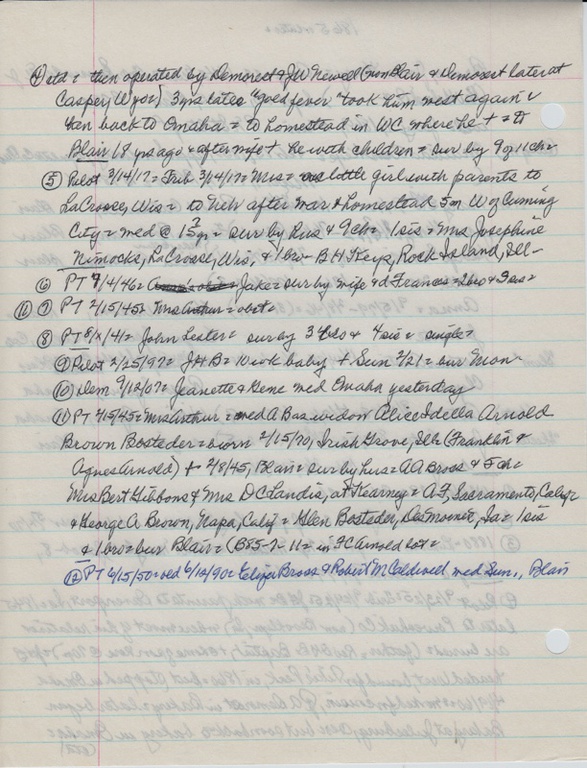 ① ctd = then operated by Demorest & JW Newell (now Blair & Demorest later at
Casper, Wyo=) 3 yrs later "gold fever" took him west again &
then back to Omaha = to homestead in WC where he + = to
Blair 18 yrs ago & after wife + he with children = sur by 9 of 11 ch=
⑤ Pilot 3/14/17= Trib 3/14/17= Mrs = little girl with parents to
LaCrosse, Wis = to Neb after war & homestead 5 m W of Cuming
City = med @ 15 yr = sur by hus & 9 ch= 1 sis = Mrs Josephine
Nimocks, LaCrosse, Wis, & 1 bro = BH Keys, Rock Island, Ill-
⑥ PT 7/4/46= Jake = sur by wife & d Frances = 2 bro & 3 sis=
⑪ ⑦ PT 2/15/45= Mrs Arthur = obit=
⑧ PT 8/ /41= John Lester = sur by 3 bro & 4 sis = single=
⑨ Pilot 2/25/97= JHB= 10 wk baby + Sun 2/21= bur Mon-
⑩ Dem 9/12/07= Jeanette & Gene med Omaha yesterday
⑪ PT 2/15/45= Mrs Arthur = med A B as widow Alice Idella Arnold
Brown Bosteder = born 2/15/70, Irish Grove, Ills (Franklin &
Agnes Arnold) + 2/8/45, Blair = sur by hus = AA Bross & 5 ch=
Mrs Bert Gibbons & Mrs DC Landis, at Kearney = AF, Sacramento, Calif=
& George A Brown, Napa, Calif = Glen Bosteder, Des Moines, Ia = 1 sis
& 1 bro = bur Blair = (B85-2-11= in FC Arnold lot=
⑫ PT 6/15/50= ved 6/12/90= Eliza Bross & Robert M Caldwell med Sun., Blair